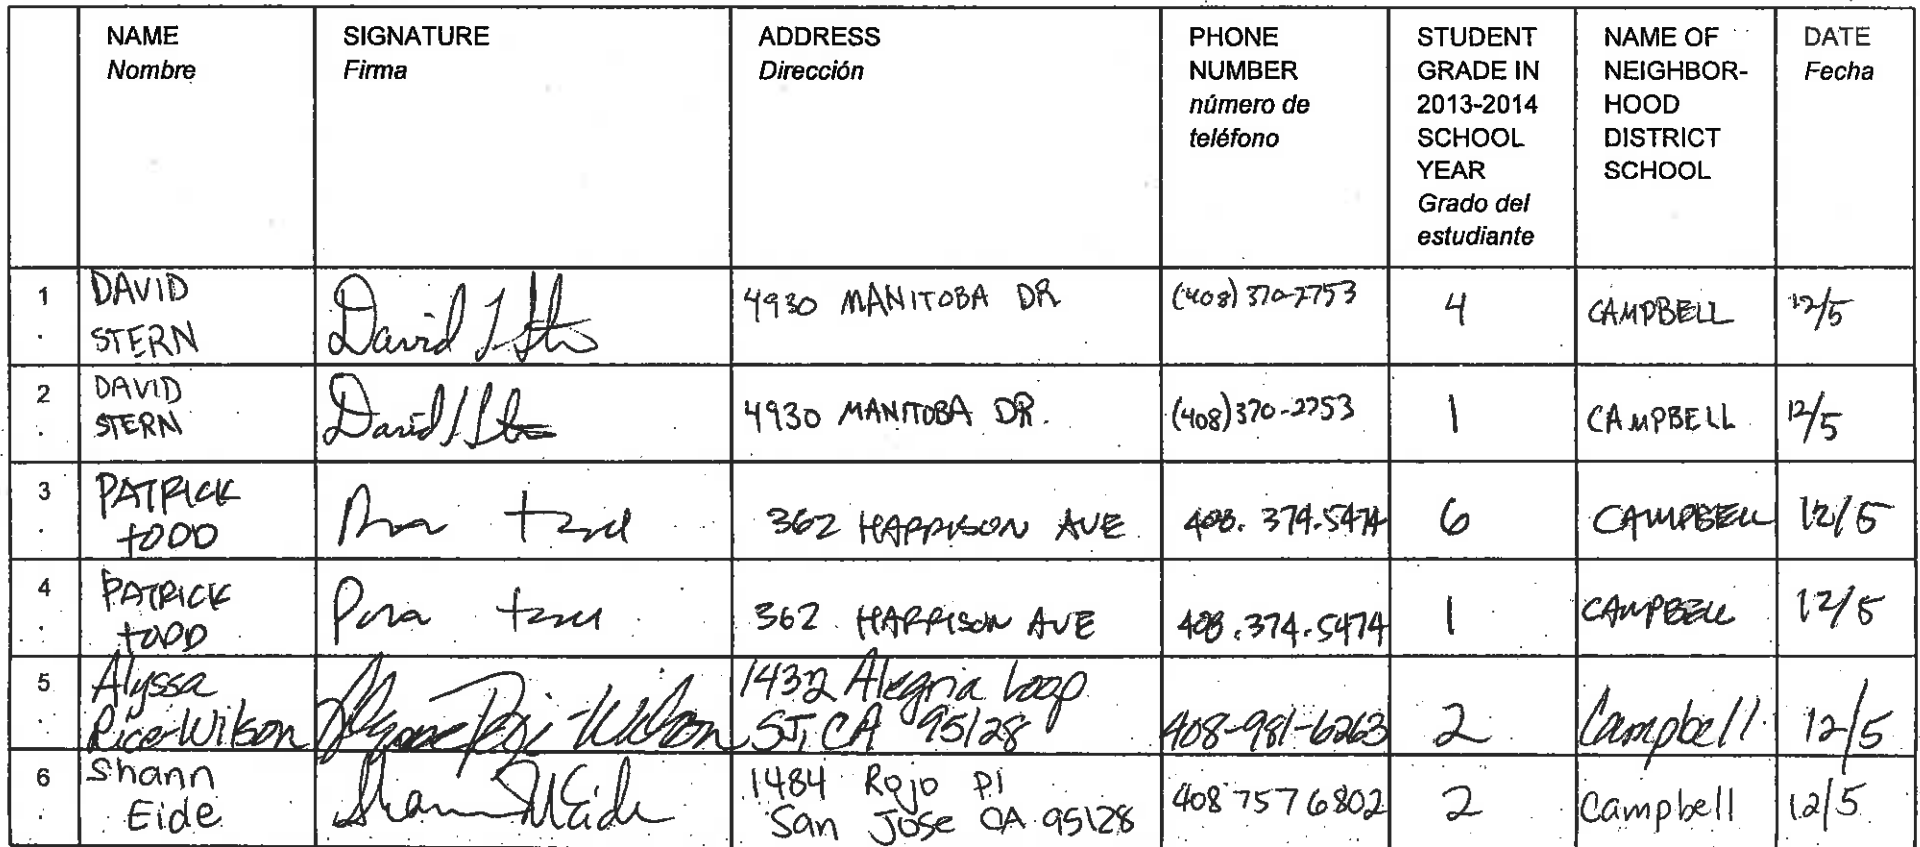 NAME
Nombre
SIGNATURE
Firma
ADDRESS
Dirección
PHONE
NUMBER
número de
teléfono
STUDENT
GRADE IN
2013-2014
SCHOOL
YEAR
Grado del
estudiante
NAME OF
NEIGHBOR-
HOOD
DISTRICT
SCHOOL
DATE
Fecha
1
.
DAVID
STERN
David
4930 MANITOBA DR
(408) 370-2753
4
CAMPBELL
12/5
2
.
DAVID
STERN
David
4930 MANITOBA DR.
(408) 370-2753
1
CAMPBELL
12/5
3
.
PATRICK
TODD
362 HARRISON AVE
408. 374.5474
6
CAMPBELL
12/5
4
.
PATRICK
TODD
362 HARRISON AVE
408.374.5474
1
CAMPBELL
12/5
5
.
Alyssa
Rice-Wilson
Alyssa Rice-Wilson
1432 Alegria Loop
SJ, CA 95128
408-981-6263
2
Campbell
12/5
6
.
Shann
Eide
Shann Eide
1484 Rojo Pl
San Jose CA 95128
408 757 6802
2
Campbell
12/5